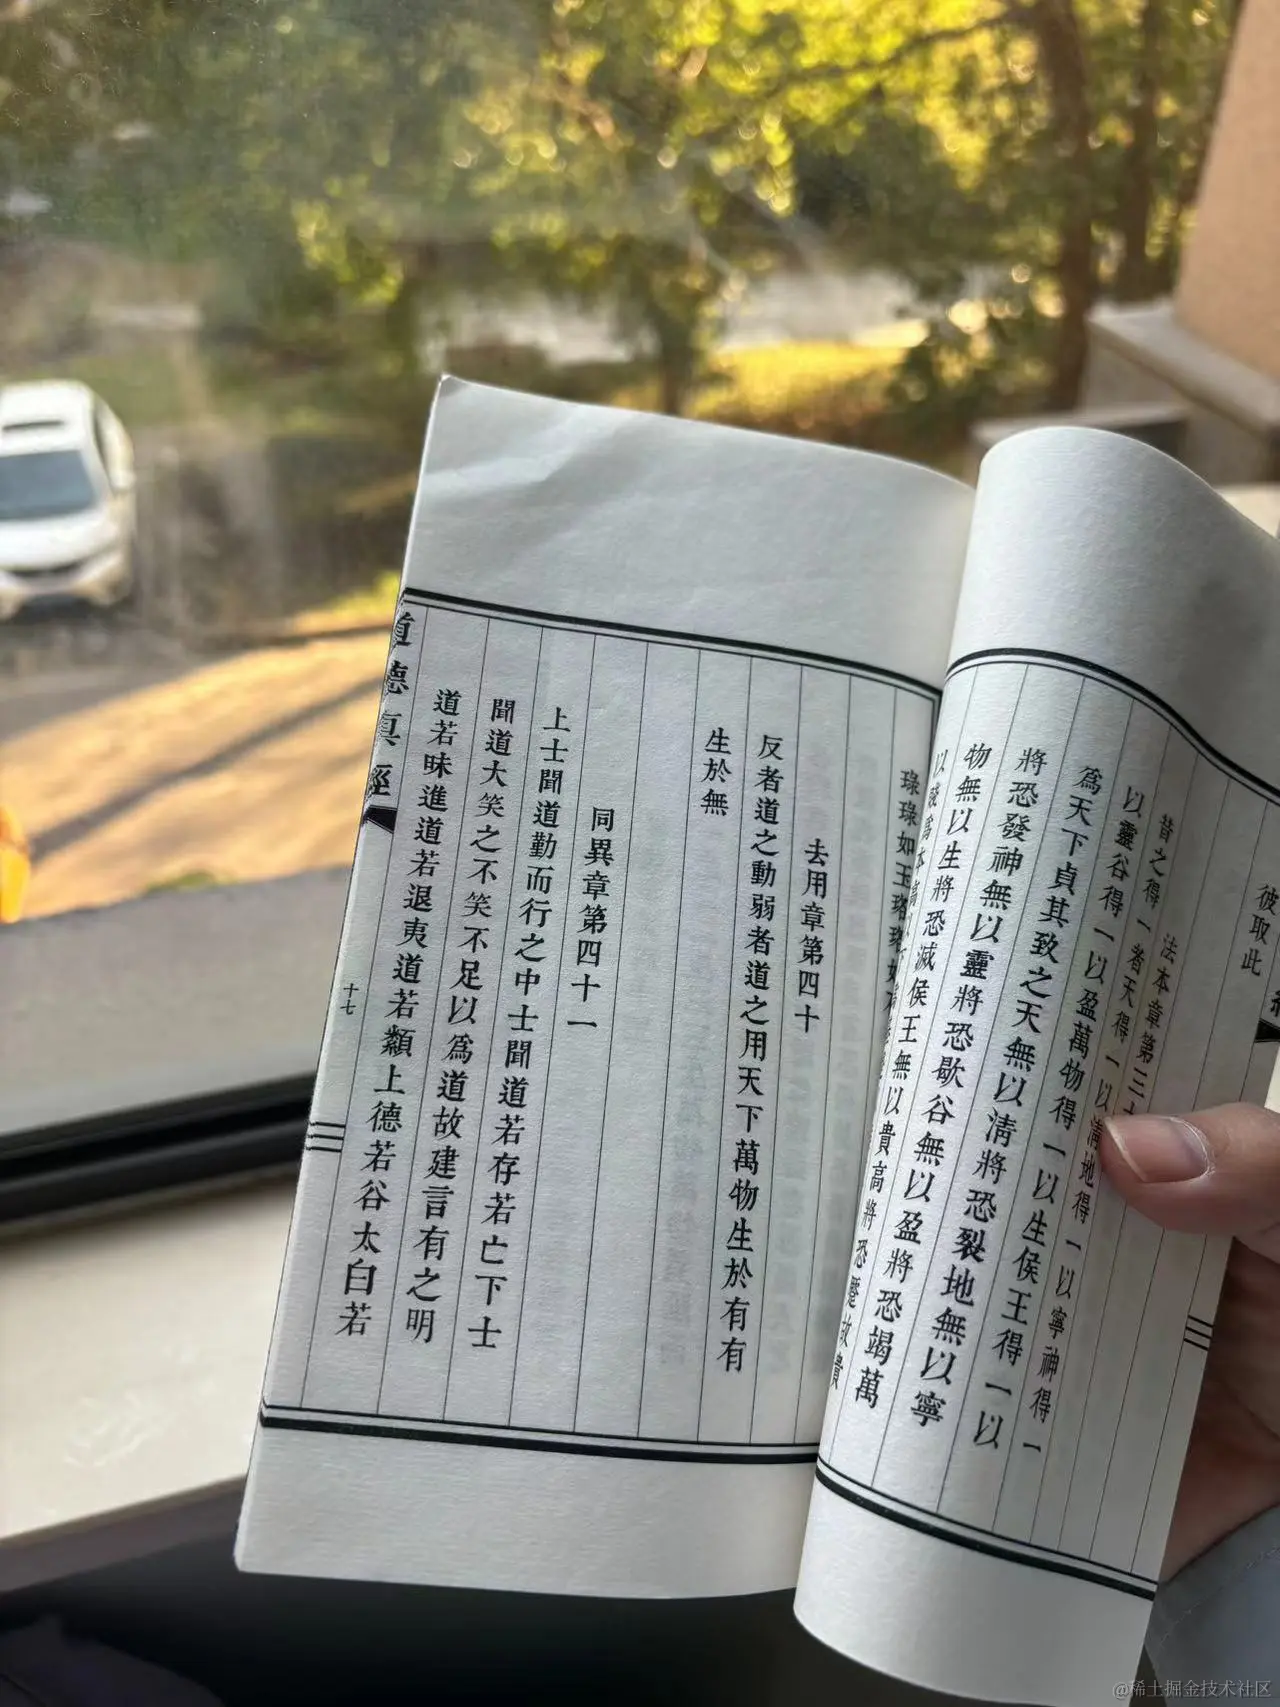 彼取此
法本章第三十
昔之得一者天得一以清地得一以寧神得一
以靈谷得一以盈萬物得一以生侯王得一以
爲天下貞其致之天無以清將恐裂地無以寧
將恐發神無以靈將恐歇谷無以盈將恐竭萬
物無以生將恐滅侯王無以貴高將恐蹷故貴
以賤爲本高以下
琭琭如玉珞珞如
去用章第四十
反者道之動弱者道之用天下萬物生於有有
生於無
同異章第四十一
上士聞道勤而行之中士聞道若存若亡下士
聞道大笑之不笑不足以爲道故建言有之明
道若昧進道若退夷道若纇上德若谷太白若
道德真經
十七
@稀土掘金技术社区